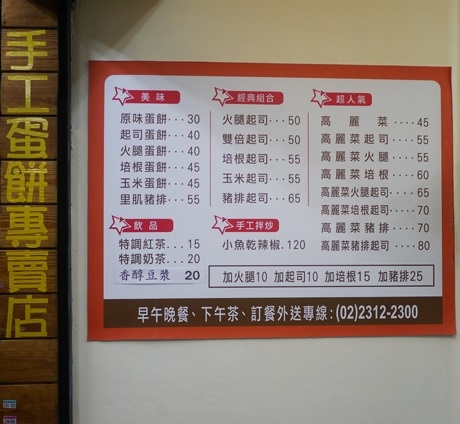 手工蛋餅專賣店
美味
原味蛋餅...30
起司蛋餅...40
火腿蛋餅...40
培根蛋餅...45
玉米蛋餅...45
里肌豬排...55
經典組合
火腿起司...50
雙倍起司...50
培根起司...55
玉米起司...55
豬排起司...65
超人氣
高麗菜....45
高麗菜起司....55
高麗菜火腿....55
高麗菜培根....60
高麗菜火腿起司....65
高麗菜培根起司....70
高麗菜豬排....70
高麗菜豬排起司....80
飲品
特調紅茶...15
特調奶茶...20
香醇豆漿 20
手工拌炒
小魚乾辣椒.120
加火腿10 加起司10 加培根15 加豬排25
早午晚餐、下午茶、訂餐外送專線:(02)2312-2300